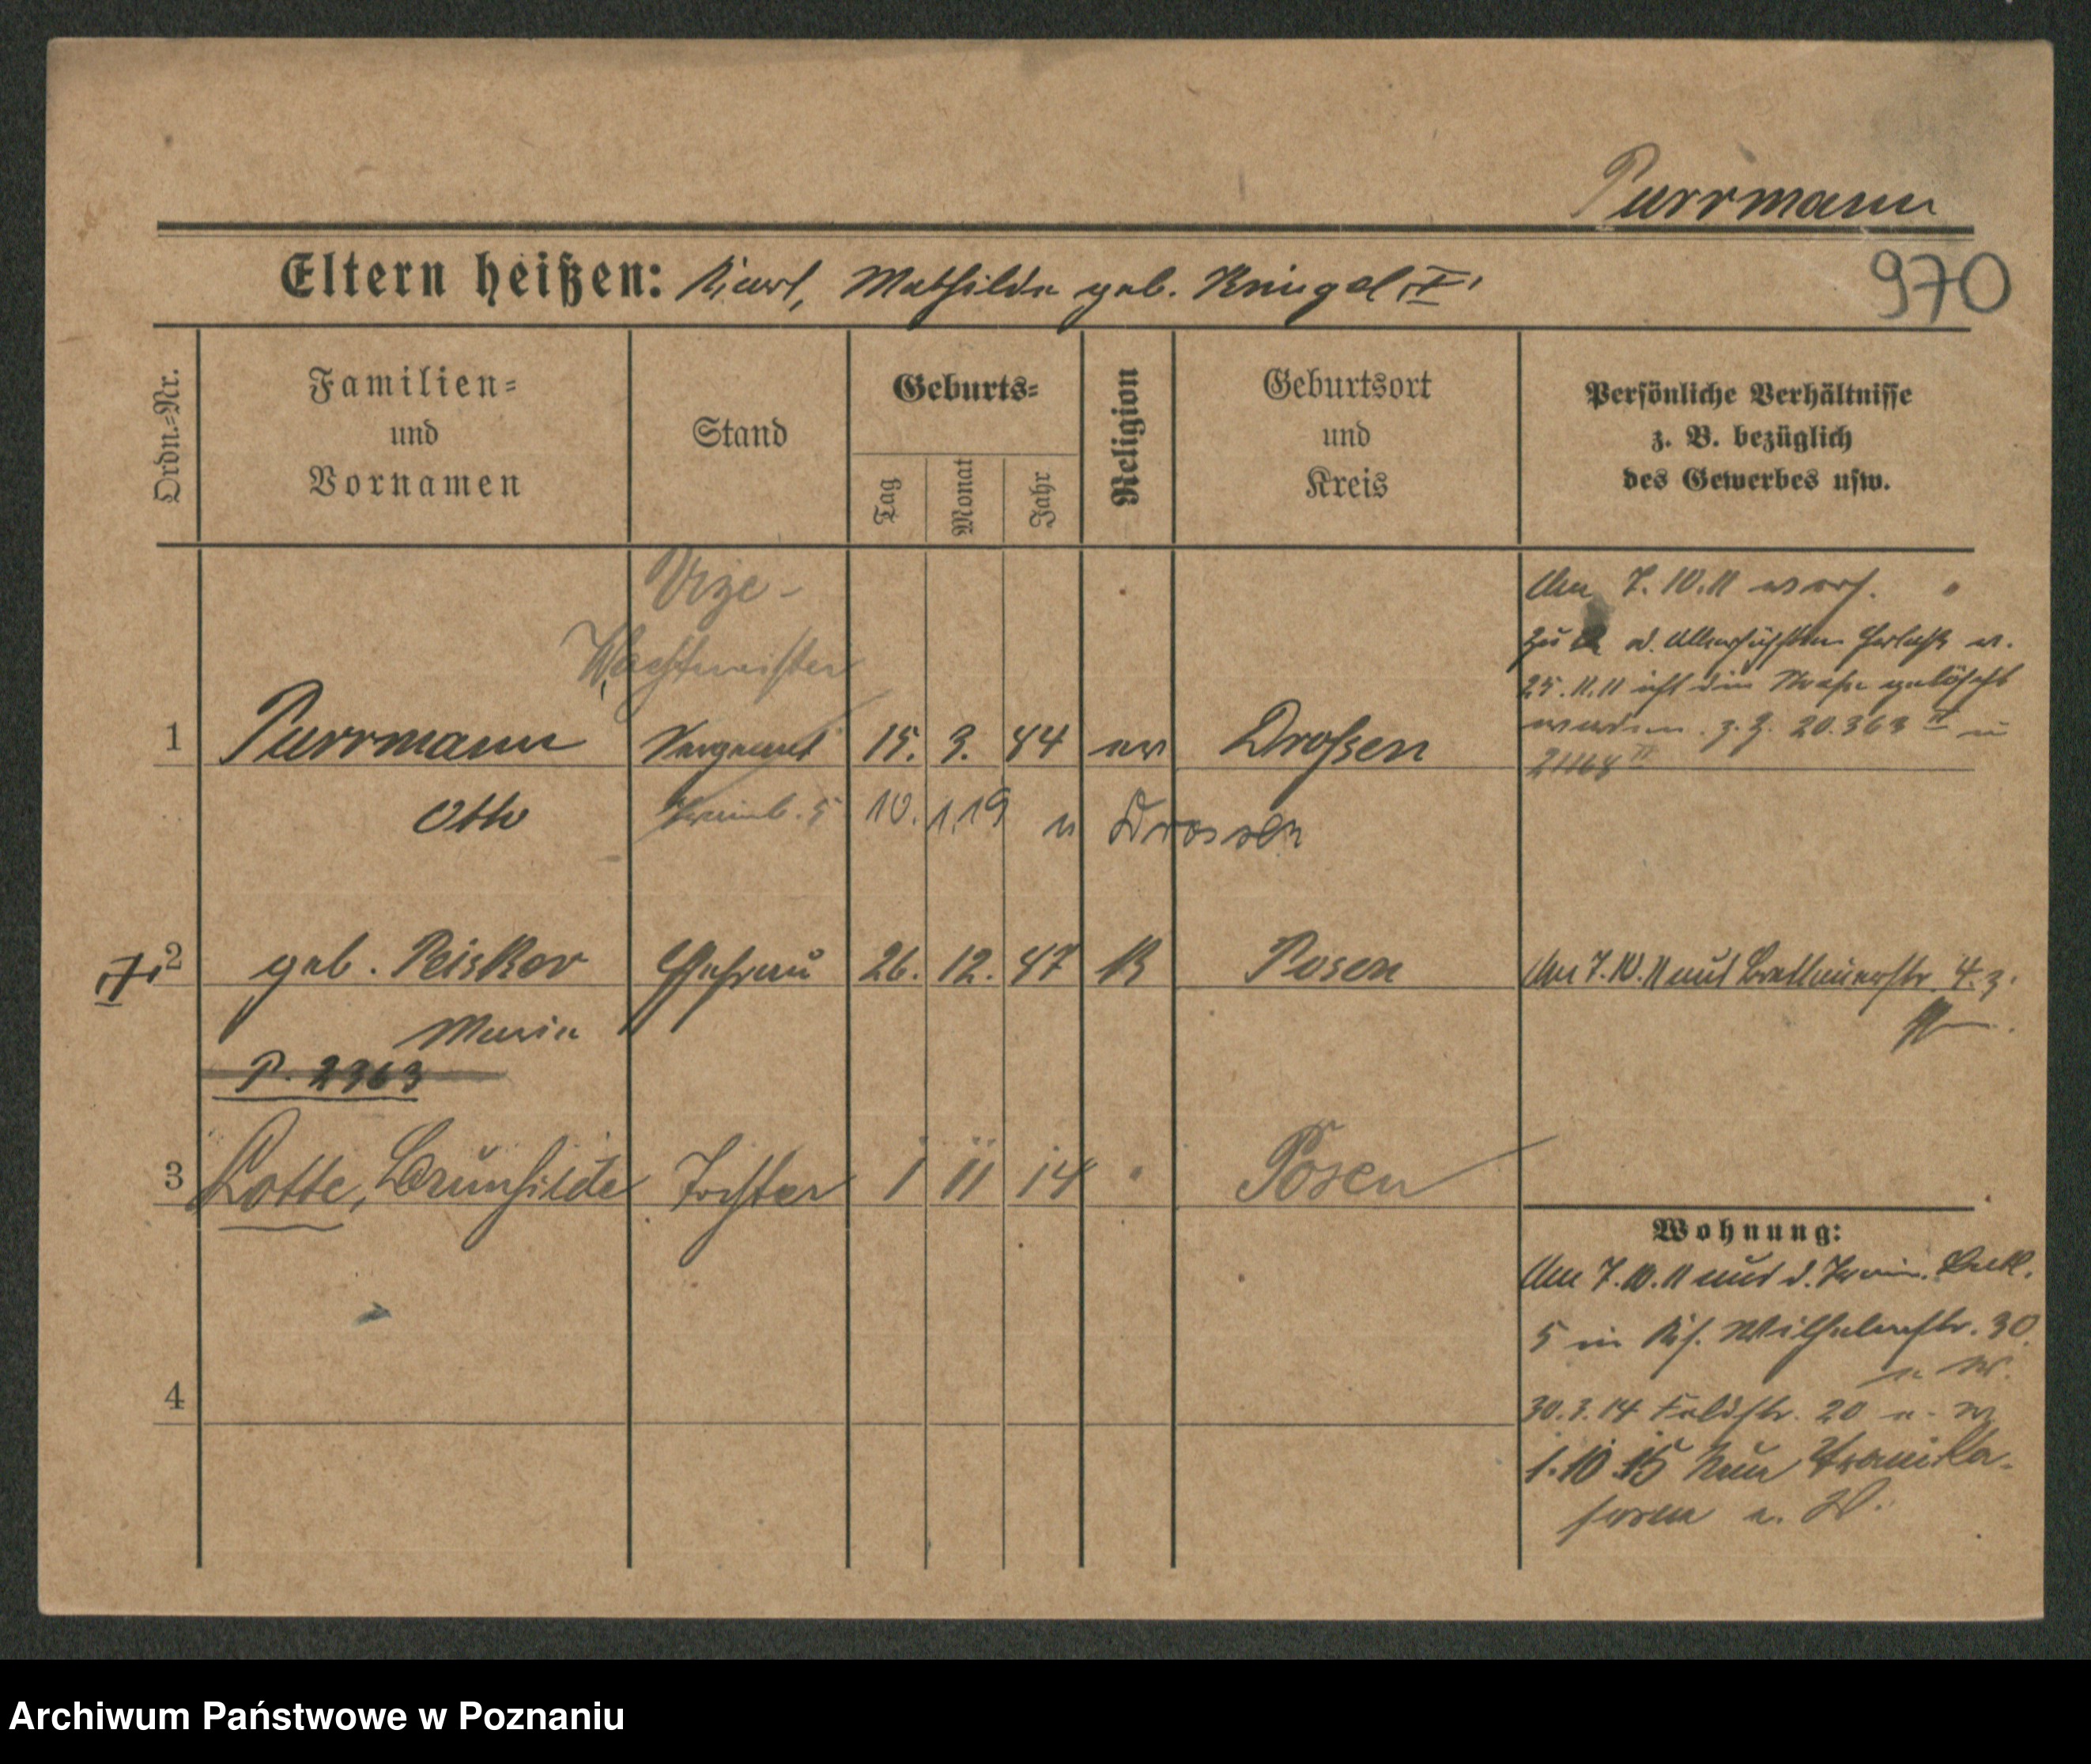 Purrmann
970
Eltern heißen: Karl, Mathilde geb. Kriegel
Ordn.=Nr.
Familien=
und
Vornamen
Stand
Geburts=
Tag
Monat
Jahr
Religion
Geburtsort
und
Kreis
Persönliche Verhältnisse
z. B. bezüglich
des Gewerbes usw.
Vize-
Wachtmeister
1 Purrmann Sergeant 15. 3. 84 ev Drossen
Otto 10. 1. 19 n Drossen
Am 7.10.11
zu
25.11.11 ist die Strafe gelöscht
worden. 20.363 II u
2 geb. Peisker Ehefrau 26. 12. 87 K Posen
Marie
Am 7.10.11 aus
P. 2363
3 Lotte, Brunhilde Tochter 1 11 14 Posen
4
Wohnung:
Am 7.10.11 aus d. Train. Batl.
5 in Wilhelmstr. 30
30.3.14 Feldstr. 20
1.10.15 Neue Trainka-
serne
Archiwum Państwowe w Poznaniu